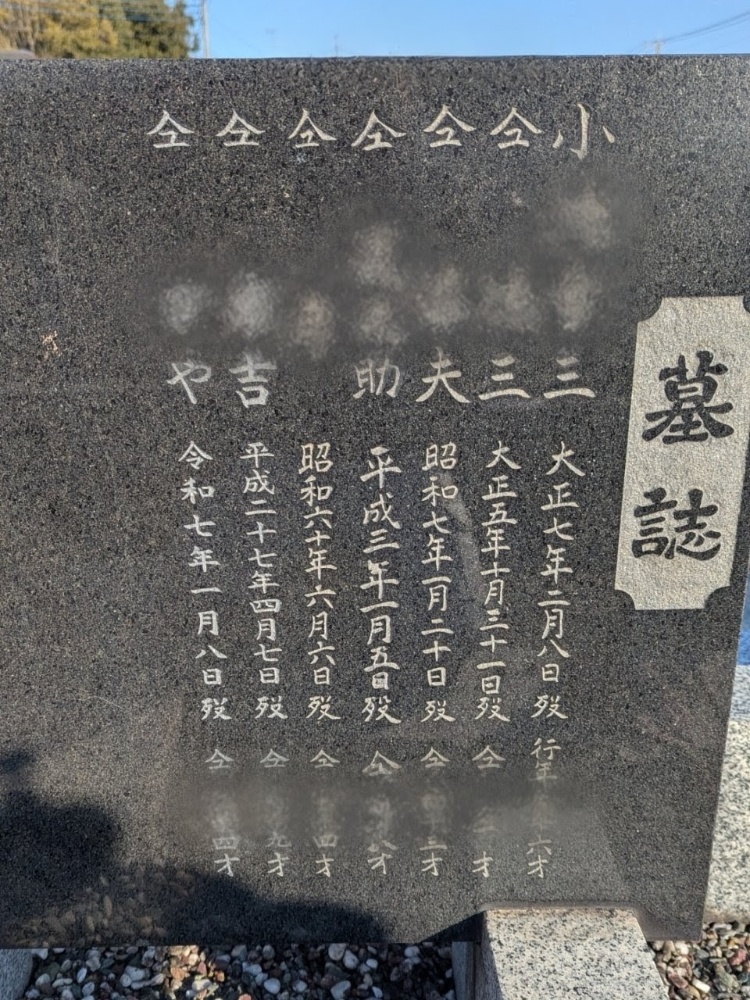 墓誌
小 三 大正七年二月八日歿 行年 六才
仝 三 大正五年十月三十一日歿 仝 才
仝 夫 昭和七年一月二十日歿 仝 三才
仝 助 平成三年一月五日歿 仝 八才
仝 昭和六十年六月六日歿 仝 四才
仝 吉 平成二十七年四月七日歿 仝 九才
仝 や 令和七年一月八日歿 仝 四才